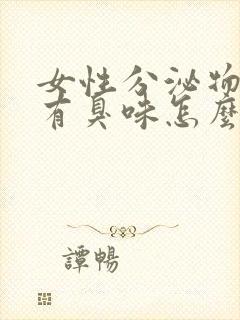 女性分泌物
有臭味怎麼
譚暢